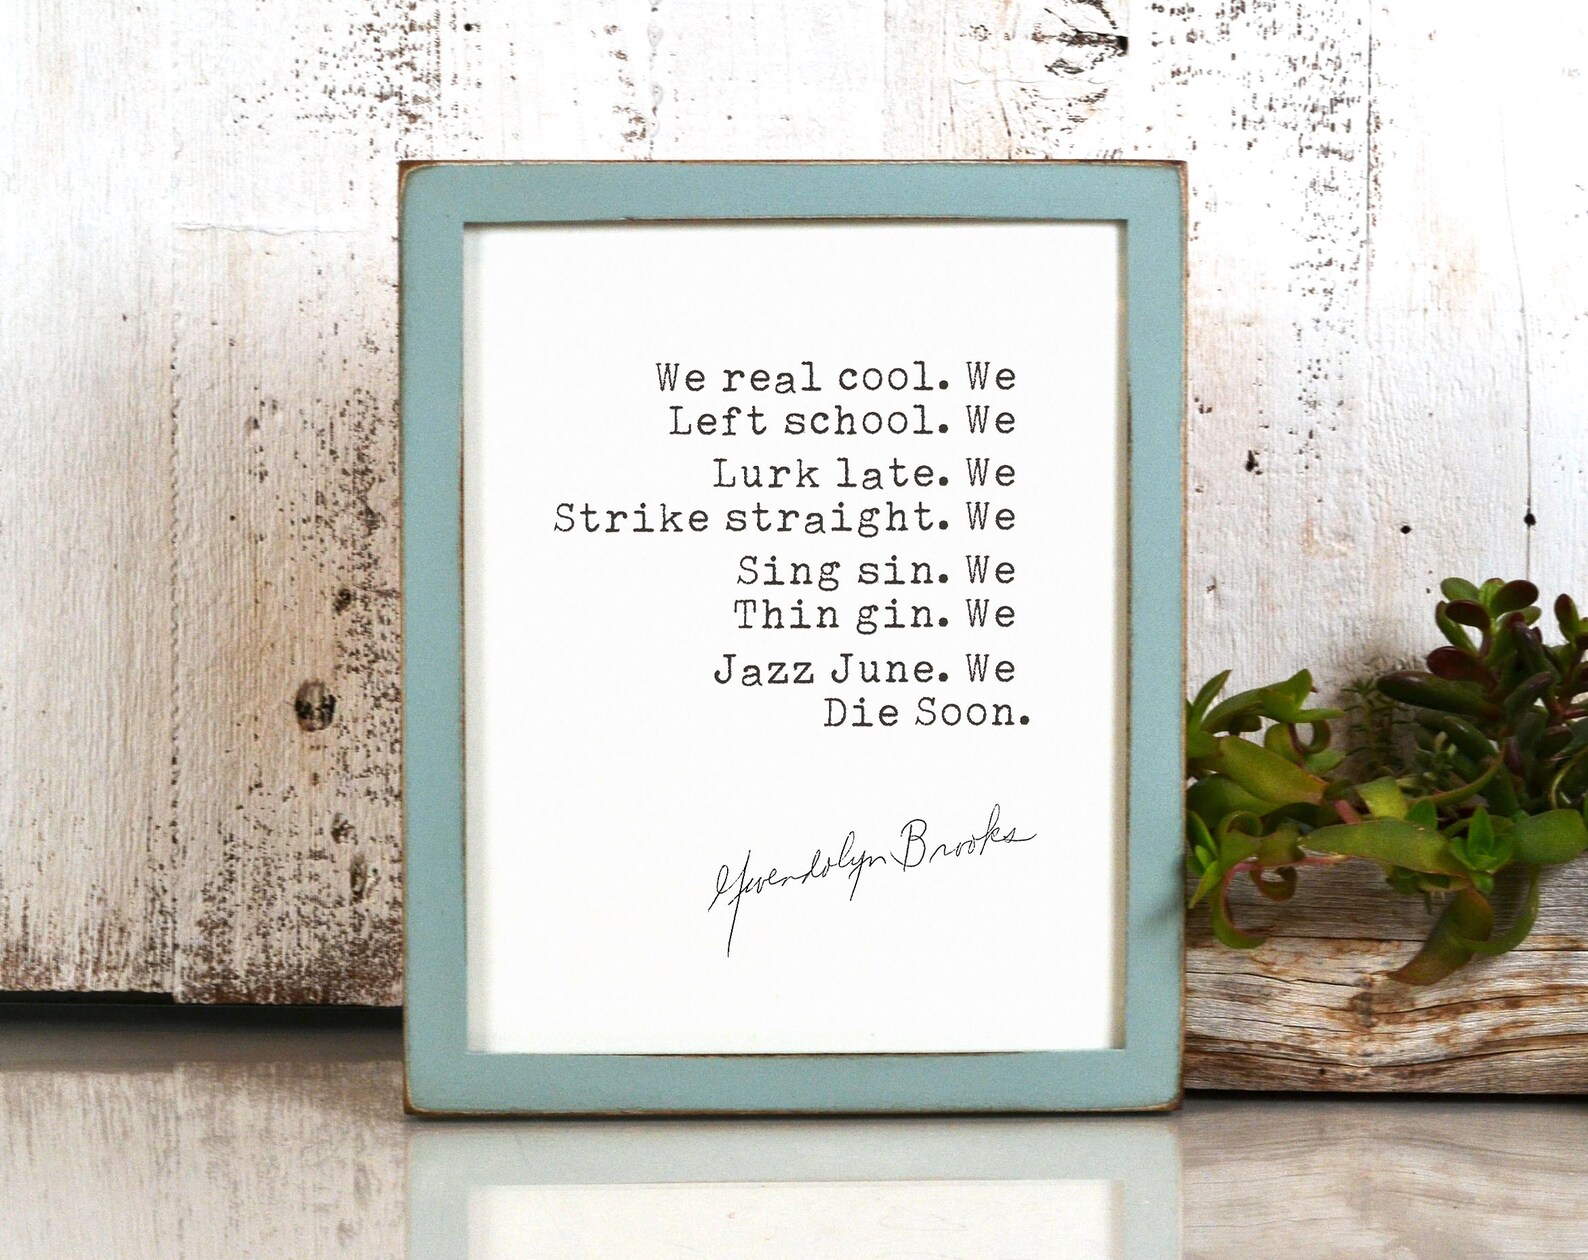 We real cool. We
Left school. We
Lurk late. We
Strike straight. We
Sing sin. We
Thin gin. We
Jazz June. We
Die Soon.
Gwendolyn Brooks